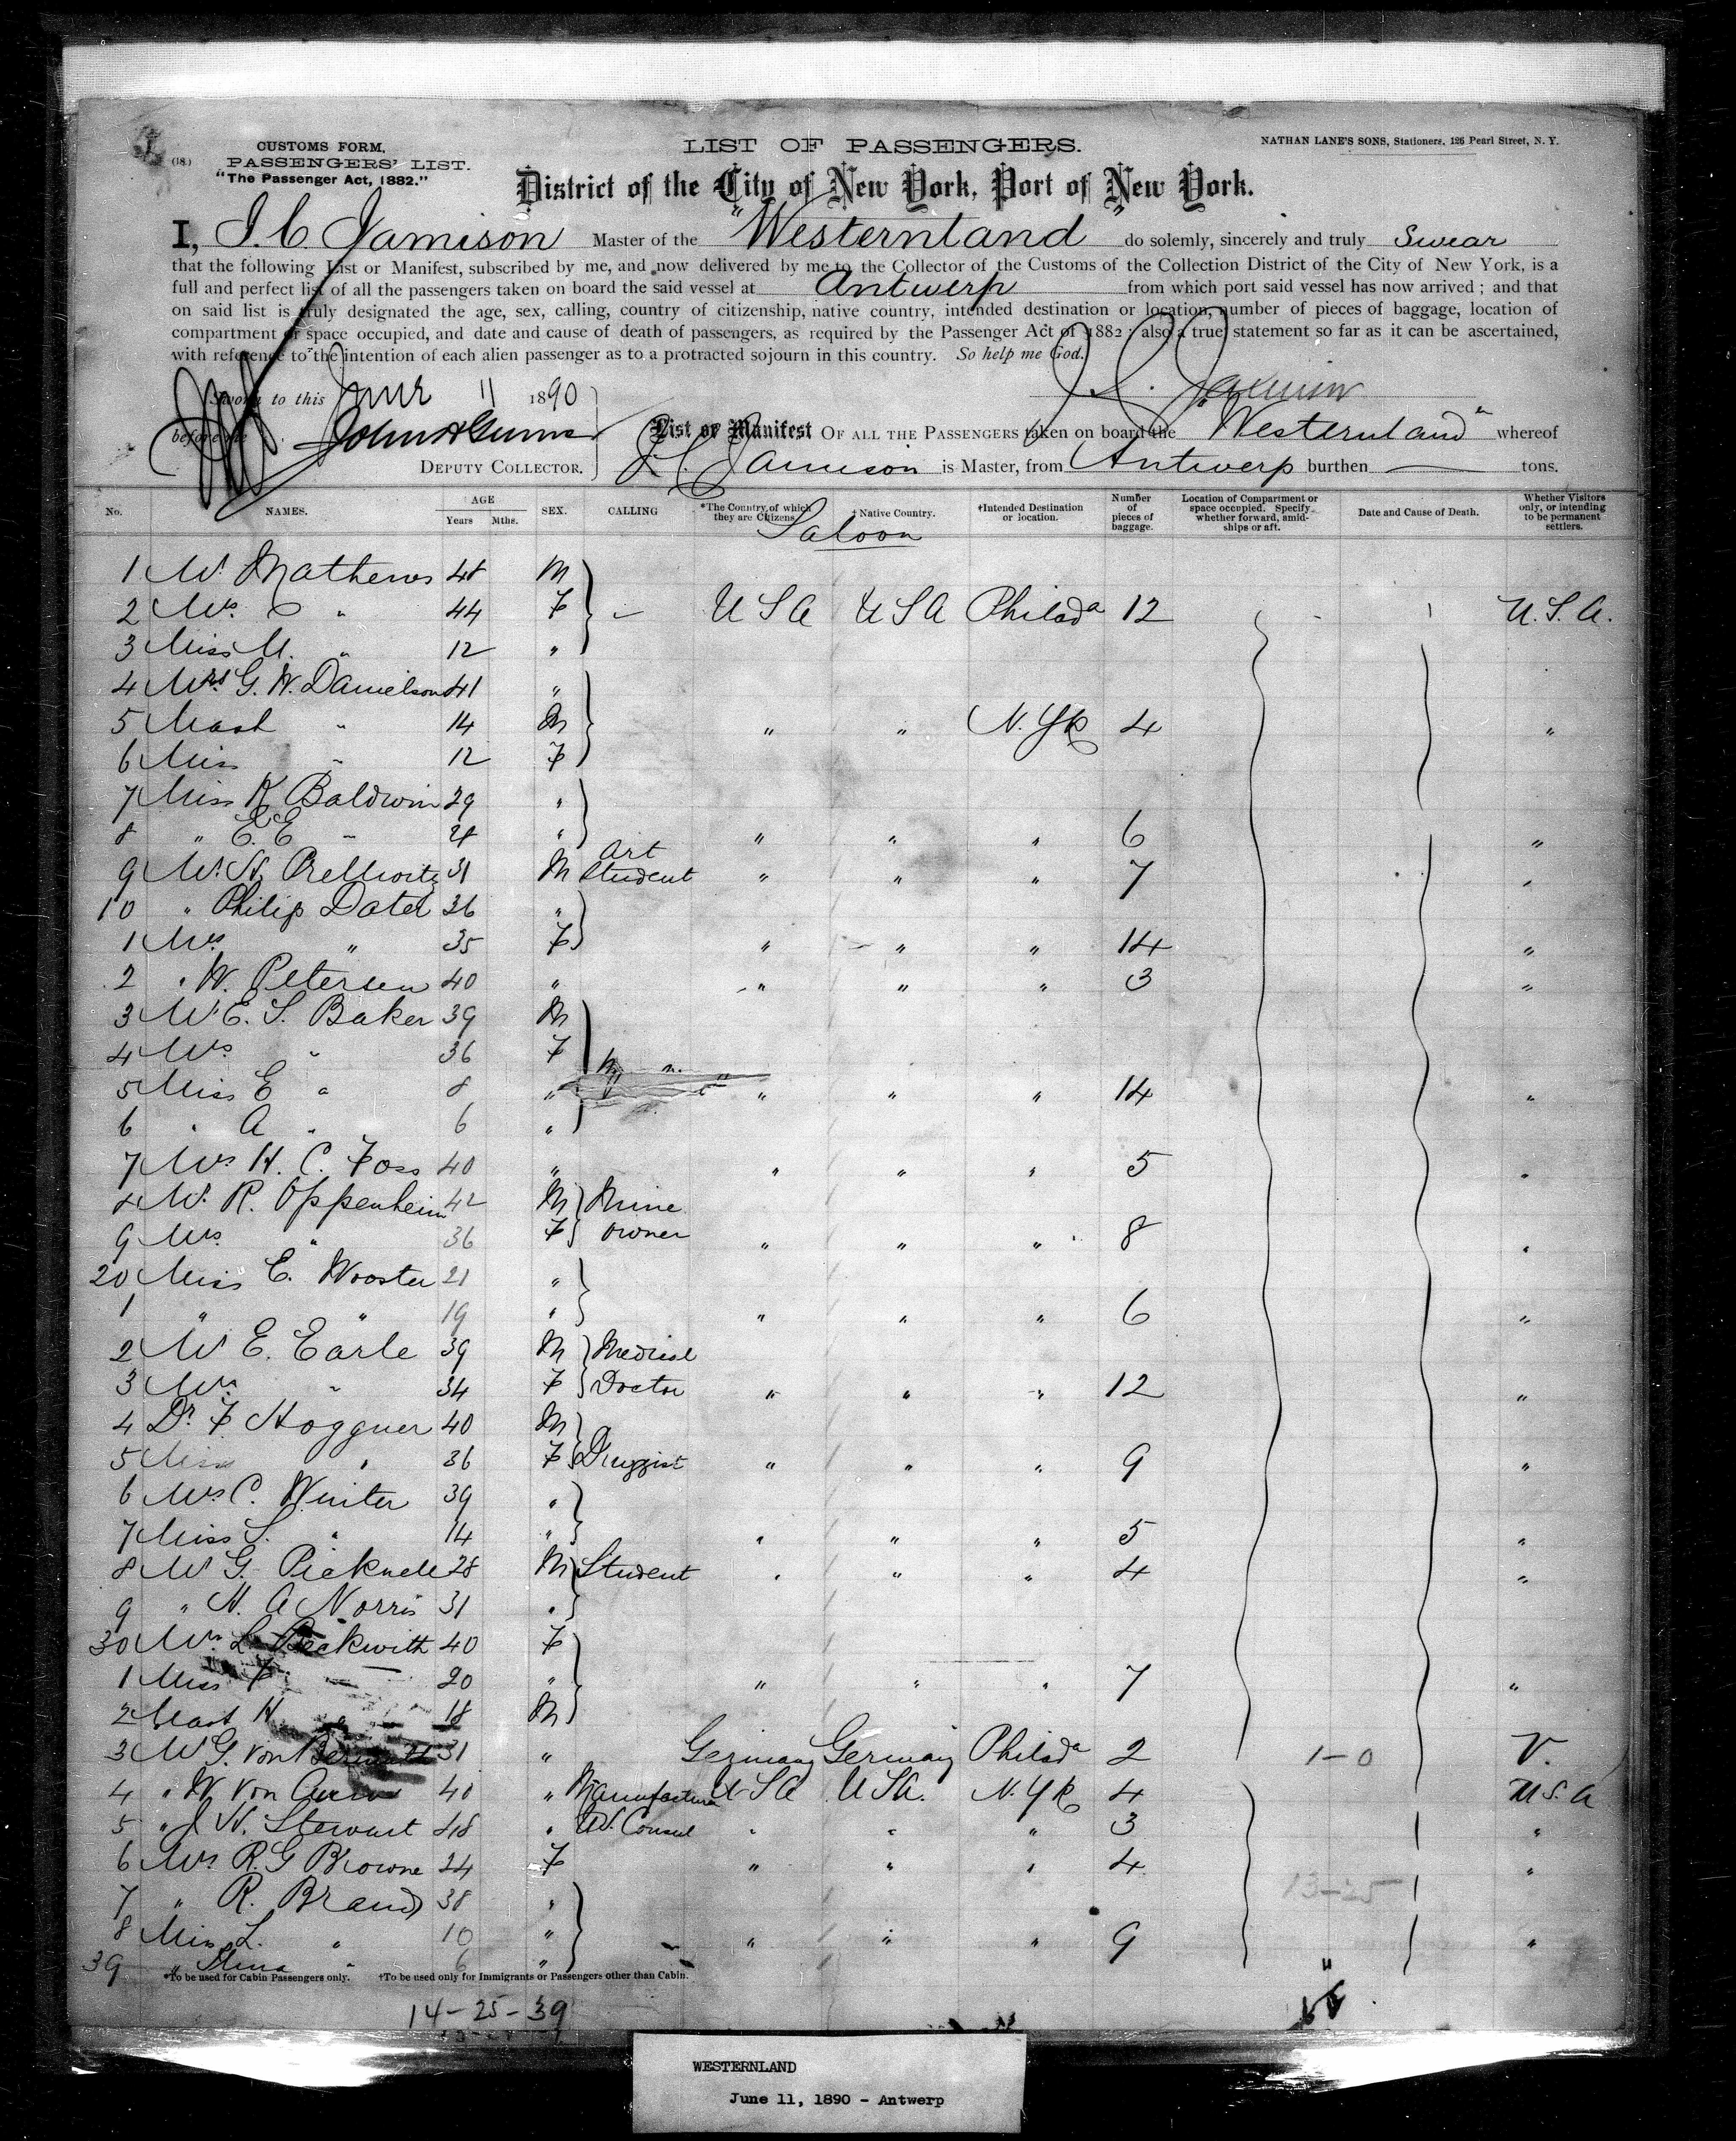 CUSTOMS FORM,
(18.) PASSENGERS' LIST.
"The Passenger Act, 1882."
LIST OF PASSENGERS.
NATHAN LANE'S SONS, Stationers, 126 Pearl Street, N. Y.
District of the City of New York, Port of New York.
I, J. C Jamison Master of the "Westernland" do solemnly, sincerely and truly Swear
that the following List or Manifest, subscribed by me, and now delivered by me to the Collector of the Customs of the Collection District of the City of New York, is a
full and perfect list of all the passengers taken on board the said vessel at Antwerp from which port said vessel has now arrived ; and that
on said list is truly designated the age, sex, calling, country of citizenship, native country, intended destination or location, number of pieces of baggage, location of
compartment or space occupied, and date and cause of death of passengers, as required by the Passenger Act of 1882 ; also a true statement so far as it can be ascertained,
with reference to the intention of each alien passenger as to a protracted sojourn in this country. So help me God.
Sworn to this June 11 1890
before me
DEPUTY COLLECTOR.
List or Manifest OF ALL THE PASSENGERS taken on board the Westernland" whereof
J C Jamison is Master, from Antwerp burthen — tons.
No. NAMES. AGE Years Mths. SEX. CALLING *The Country of which they are Citizens. † Native Country. †Intended Destination or location. Number of pieces of baggage. Location of Compartment or space occupied. Specify whether forward, amidships or aft. Date and Cause of Death. Whether Visitors only, or intending to be permanent settlers.
Saloon
1 Mr. Mathews 48 M
2 Mrs " 44 F - U S A U S A Philada 12 U. S. A.
3 Miss M. " 12 "
4 Mrs G. W. Danielson 41 "
5 Mast " 14 M " " N. Yk 4 "
6 Miss " 12 F
7 Miss K Baldwin 29 "
8 " E. E " " " " " 6 "
9 Mr. H. Prellwitz 31 M Art Student " " " 7 "
10 " Philip Dater 36 "
1 Mrs " 35 F " " " 14 "
2 " W. Petersen 40 " " " " 3 "
3 Mr E. S. Baker 39 M
4 Mrs " 36 F
5 Miss E " 8 " " " " 14 "
6 " A " 6 "
7 Mrs H. C. Foss 40 " " " " 5 "
8 Mr. R. Oppenheim 42 M Mine
9 Mrs. " 36 F owner " " " 8 "
20 Miss E. Wooster 21 "
1 " " 19 " " " " 6 "
2 Mr E. Earle 39 M Medical
3 Mrs " 34 F Doctor " " " 12 "
4 Dr. F Hoggner 40 M
5 Miss " 36 F Druggist " " " 9 "
6 Mrs C. Winter 39 "
7 Miss S. " 14 " " " " 5 "
8 Mr G. Picknell 28 M Student " " " 4 "
9 " H. A Norris 31 "
30 Mrs L. Beckwith 40 F
1 Miss F " 20 " " " " 7 "
2 Mast H " 18 M
3 Mr G. von 31 " Germany Germany Philada 2 1-0 V.
4 " W. von 40 " Manufacturer U S A U S A. N. Yk 4 U S. A
5 " J H. Stewart 48 " U.S. Consul " " " 3 "
6 Mrs R. G Browne 24 F " " " 4 "
7 " R. Brand 38 " 13-25
8 Miss L. " 10 " " " " 9 "
39 " " 6 "
*To be used for Cabin Passengers only. †To be used only for Immigrants or Passengers other than Cabin.
14-25-39
WESTERNLAND
June 11, 1890 - Antwerp